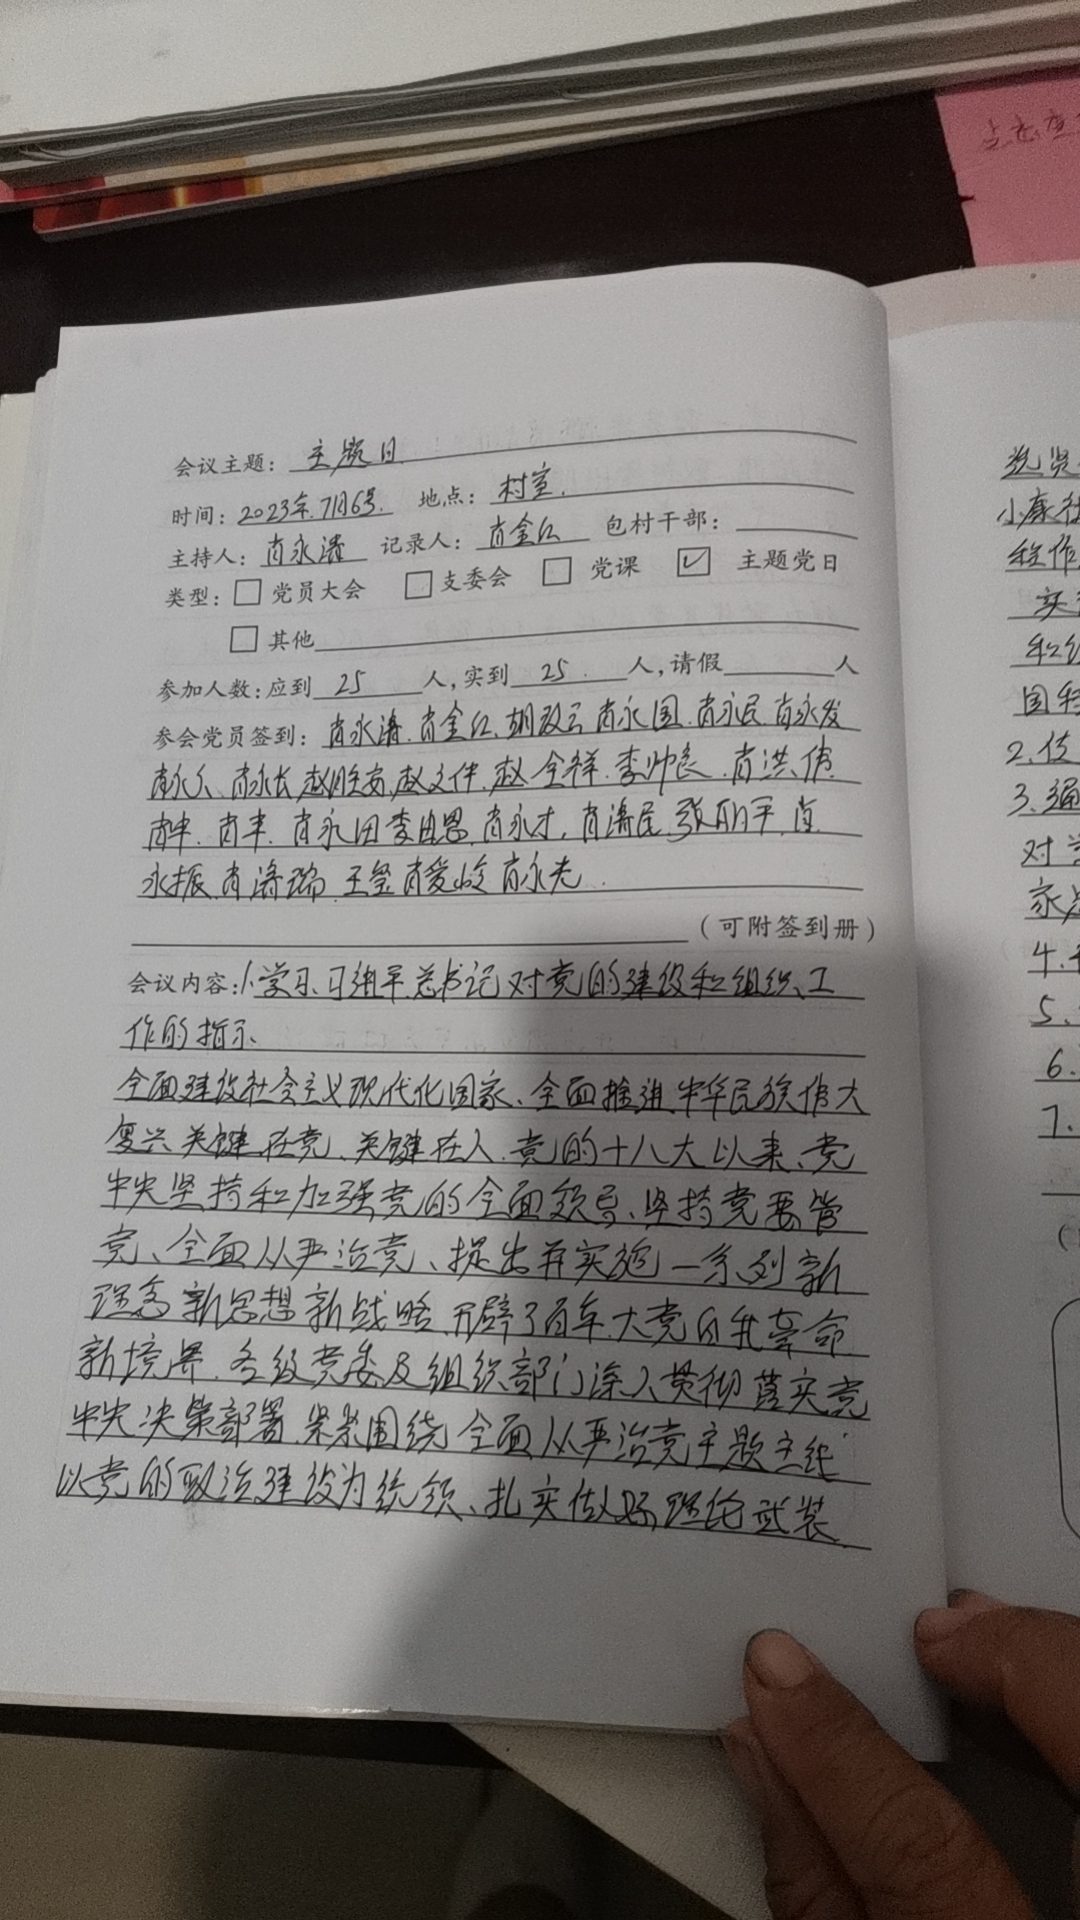 会议主题: 主题日
时间: 2023年.7月6号. 地点: 村室.
主持人: 肖永清 记录人: 肖金红 包村干部:
类型: □ 党员大会 □ 支委会 □ 党课 ☑ 主题党日
□ 其他
参加人数: 应到 25 人, 实到 25 . 人, 请假 人
参会党员签到: 肖永清. 肖金红. 肖永国. 肖永民. 肖永发
肖永长 赵文件. 赵全祥. 李帅 肖洪伟
肖丰. 肖永田 肖永才, 肖清民. 张 平, 肖
永振. 肖清瑞 王玺 肖爱 肖永先.
(可附签到册)
会议内容: 1、学习、习近平总书记对党的建设和组织、工
作的指示、
全面建设社会主义现代化国家、全面推进中华民族伟大
复兴 关键 在党、关键在人. 党的十八大以来、党
中央坚持和加强党的全面领导、坚持党要管
党、全面从严治党、提出并实施一系列新
理念新思想新战略、开辟了百年大党自我革命
新境界. 各级党委及组织部门深入贯彻落实党
中央决策部署 紧紧围绕 全面从严治党主题主线
以党的政治建设为统领、扎实做好理论武装
选贤
小康社
程作
实
和组
国特
2.传
3.通
对党
家
4.
5.
6.
7.